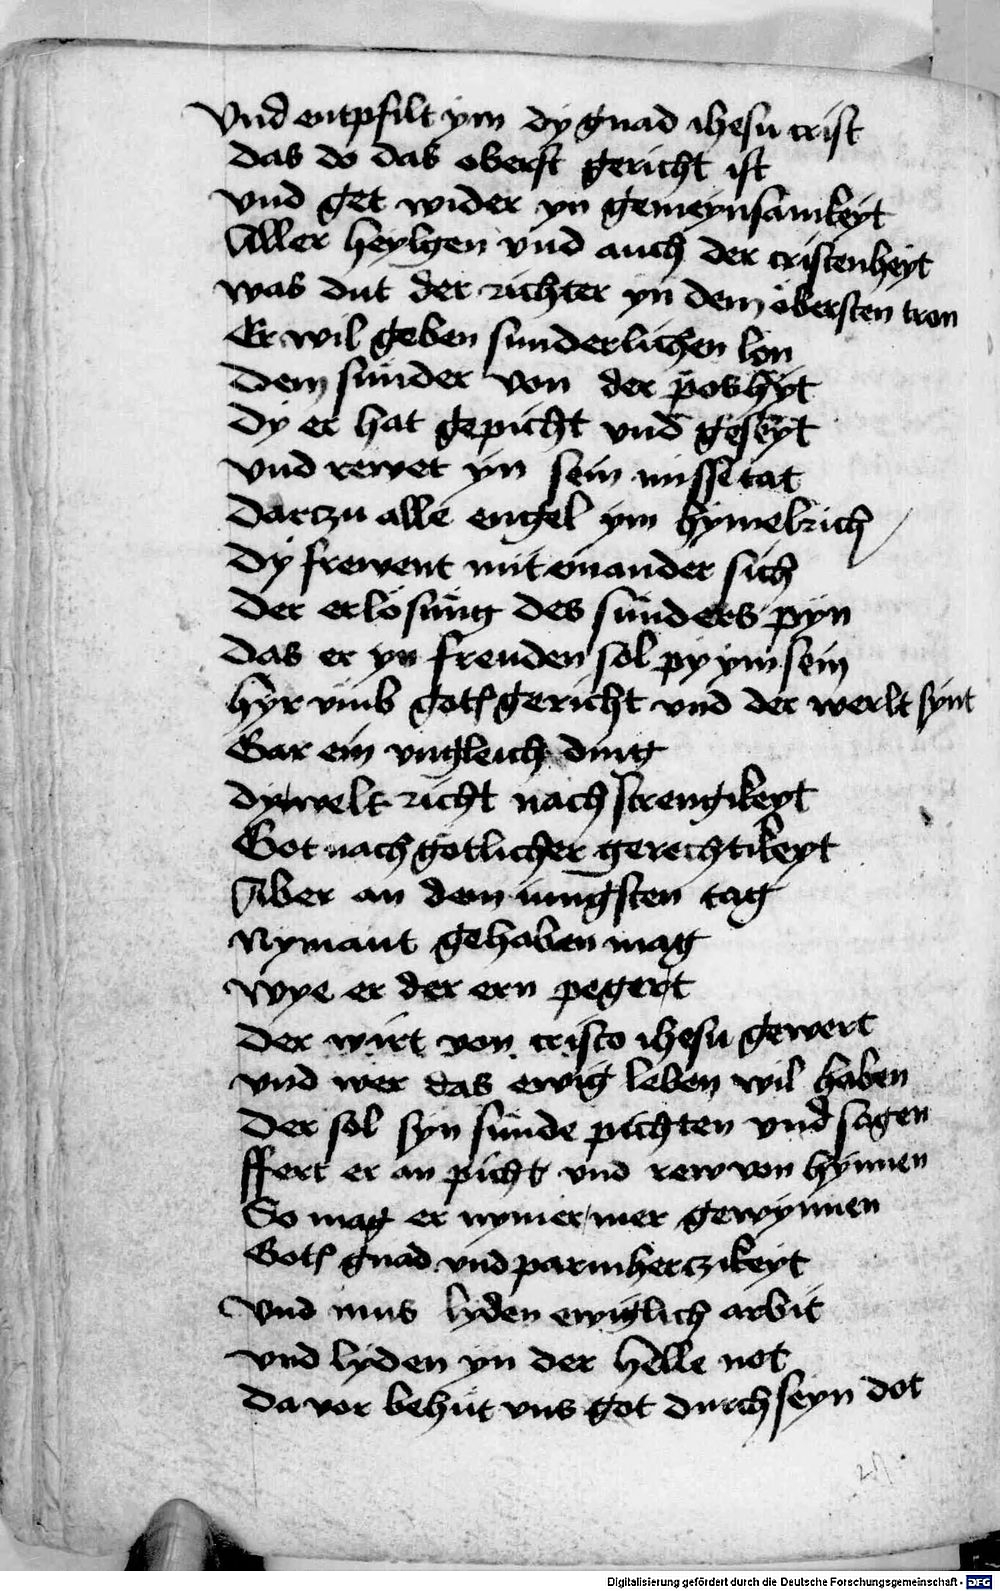 Vnd entpfilt ym dy gnad ihesu crist
das do das oberst gericht ist
vnd get wider yn gemeynsamkeyt
Aller heylgen vnd auch der cristenheyt
was dut der richter yn dem öbersten tron
Er wil geben sunderlichen lon
Dem sunder von der poshyt
Dy er hat gepicht vnd geseyt
vnd rewet yn sein missetat
Darczu alle engel ym hymelrich
Dy frewent mit einander sich
Der erlösung des sunders pyn
Das er yn freuden sol py ym sein
hyr vmb gots gericht vnd der werlt synt
Gar ein vngleich ding
Dy welt richt nach strengikeyt
Got nach gotlicher gerechtikeyt
Aber an dem iungsten tag
Nymant gehaben mag
wye er der ern pegert
Der wirt von cristo ihesu gewert
vnd wer das ewig leben wil haben
Der sol syn sunde pichten vnd sagen
ffert er an picht vnd rew von hynnen
So mag er nymer mer gewynnen
Gots gnad vnd parmherczikeyt
Vnd mus lyden ewiglich arbit
vnd lyden yn der helle not
Da vor behut vns got durch seyn dot
Digitalisierung gefördert durch die Deutsche Forschungsgemeinschaft - DFG